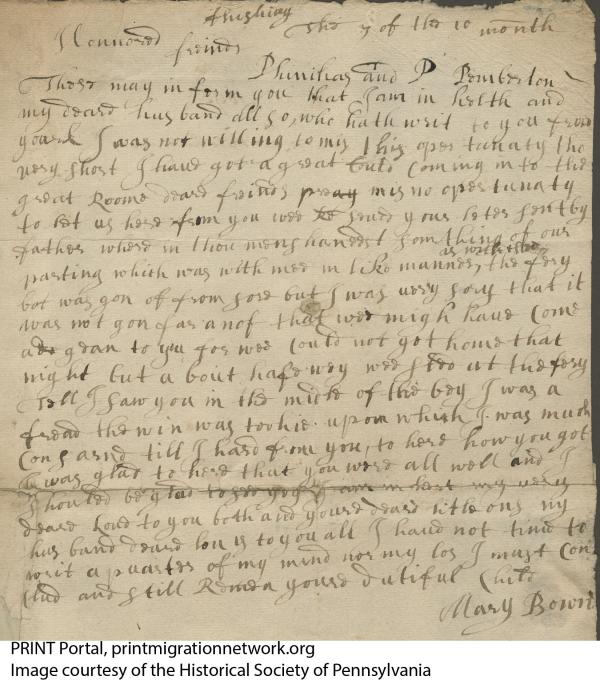 flushing
the 7 of the 10 month
Honnored freinds
Phinihas and P Pemberton
These may in form you that I am in helth and
my deard husband all so, who hath writ to you from
york I was not willing to mis this opertunaty tho
very short I have got a great Could Coming in to the
great Roome deard freinds pray mis no opertunaty
to let us here from you wee sends yours leter sent by
father where in thou menshanest som thing of our
parting which was with mee in like manner, as with thee the fery
bot was gon of from shore but I was very sory that it
was not gon far anof that wee migh have Come
a gean to you for wee Could not got home that
night but a bout hafe way wee at the fery
Tell I saw you in the midle of the bay I was a
fread the win was to hie upon which I was much
Consarnd till I hard from you, to here how you got
I was glad to here that you were all well and I
should be glad to see you I am in hast my very
deard love to you both and yours deard litle ons my
husband deard lov is to you all I have not time to
writ a quarter of my mind nor my lov I must Con
clud and still Remen yours dutiful Child
Mary Bown
PRINT Portal, printmigrationnetwork.org
Image courtesy of the Historical Society of Pennsylvania